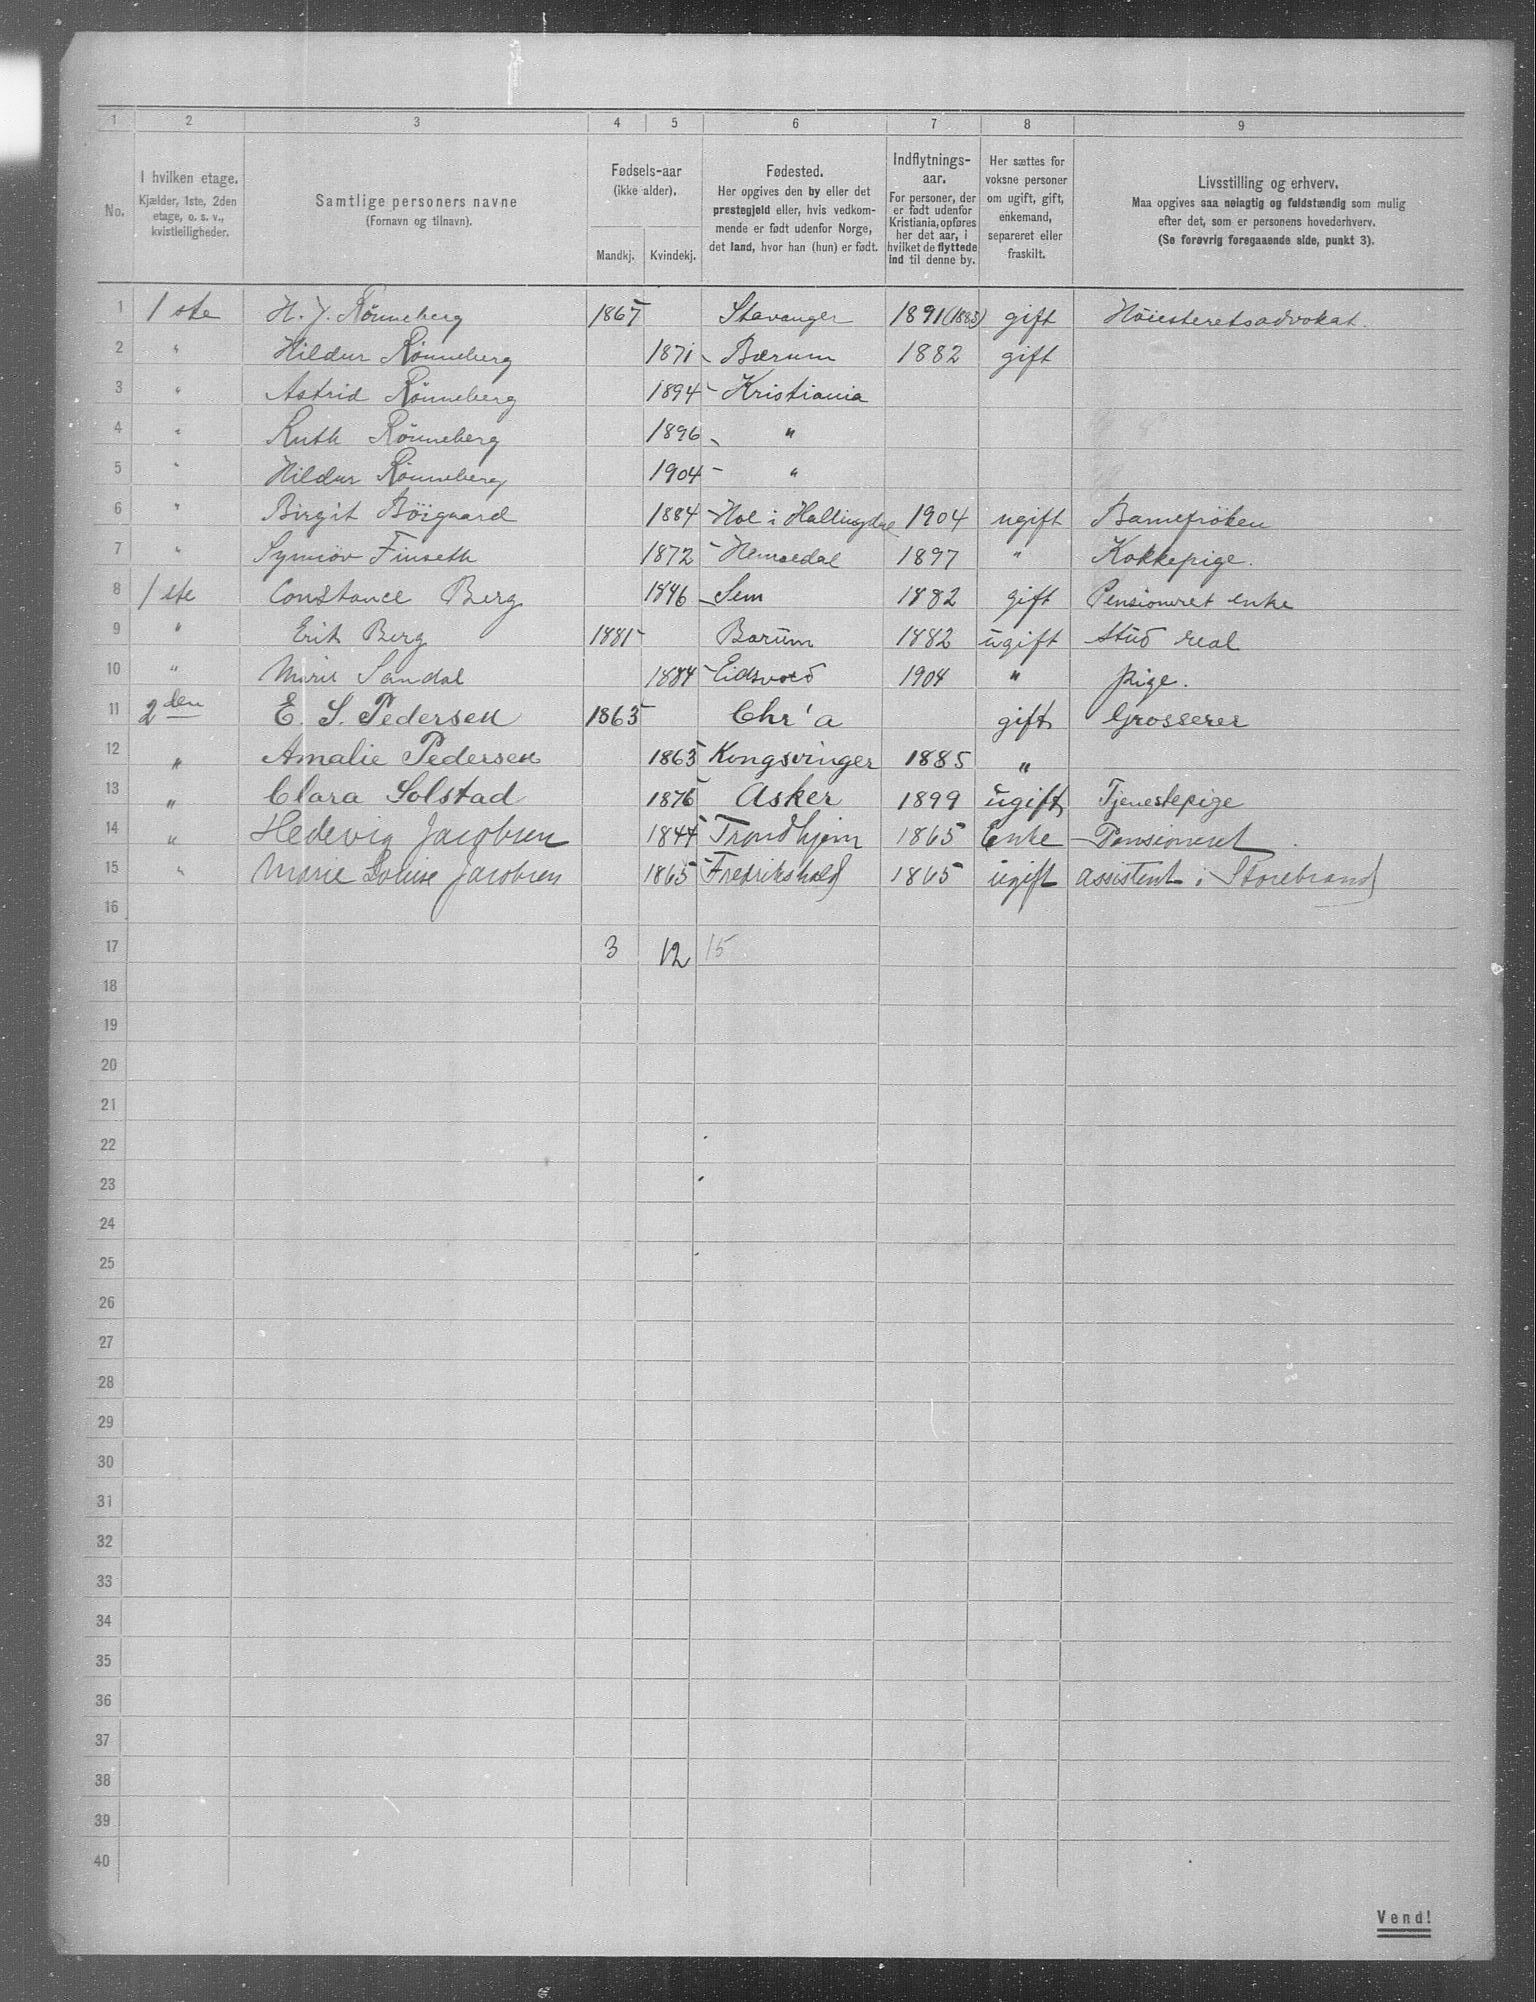 1 2 3 4 5 6 7 8 9
No.
I hvilken etage.
Kjælder, 1ste, 2den
etage, o. s. v.,
kvistleiligheder.
Samtlige personers navne
(Fornavn og tilnavn).
Fødsels-aar
(ikke alder).
Mandkj. Kvindekj.
Fødested.
Her opgives den by eller det
prestegjeld eller, hvis vedkom-
mende er født udenfor Norge,
det land, hvor han (hun) er født.
Indflytnings-
aar.
For personer, der
er født udenfor
Kristiania, opføres
her det aar, i
hvilket de flyttede
ind til denne by.
Her sættes for
voksne personer
om ugift, gift,
enkemand,
separeret eller
fraskilt.
Livsstilling og erhverv.
Maa opgives saa nøiagtig og fuldstændig som mulig
efter det, som er personens hovederhverv.
(Se forøvrig foregaaende side, punkt 3).
1 1 ste H. J. Rönneberg 1865 Stavanger 1891 (1885) gift Höiesteretsadvokat.
2 " Hildur Rönneberg 1871 - Bærum 1882 gift
3 " Astrid Rönneberg 1894 - Kristiania
4 " Ruth Rönneberg 1896 - "
5 " Hildur Rönneberg 1904 - "
6 " Birgit Böigaard 1884 - Hol i Hallingdal 1904 ugift Barnefröken
7 " Synnöv Finseth 1872 - Hemsedal 1897 " Kokkepige.
8 1 ste Constance Berg 1846 - Sem 1882 gift Pensioneret enke
9 " Erik Berg 1881 - Barum 1882 ugift stud real
10 " Marie Sandal 1884 - Eidsvold 1904 " pige.
11 2den E. S. Pedersen 1863 Chr'a gift Grosserer
12 " Amalie Pedersen 1863 Kongsvinger 1885 "
13 " Clara Solstad 1876 Asker 1899 ugift Tjenestepige
14 " Hedevig Jacobsen 1844 Trondhjem 1865 Enke Pensioneret.
15 " Marie Louise Jacobsen 1865 Fredrikshald 1865 ugift assistent i Storebrand
16
17 3 12 15
18
19
20
21
22
23
24
25
26
27
28
29
30
31
32
33
34
35
36
37
38
39
40
Vend!